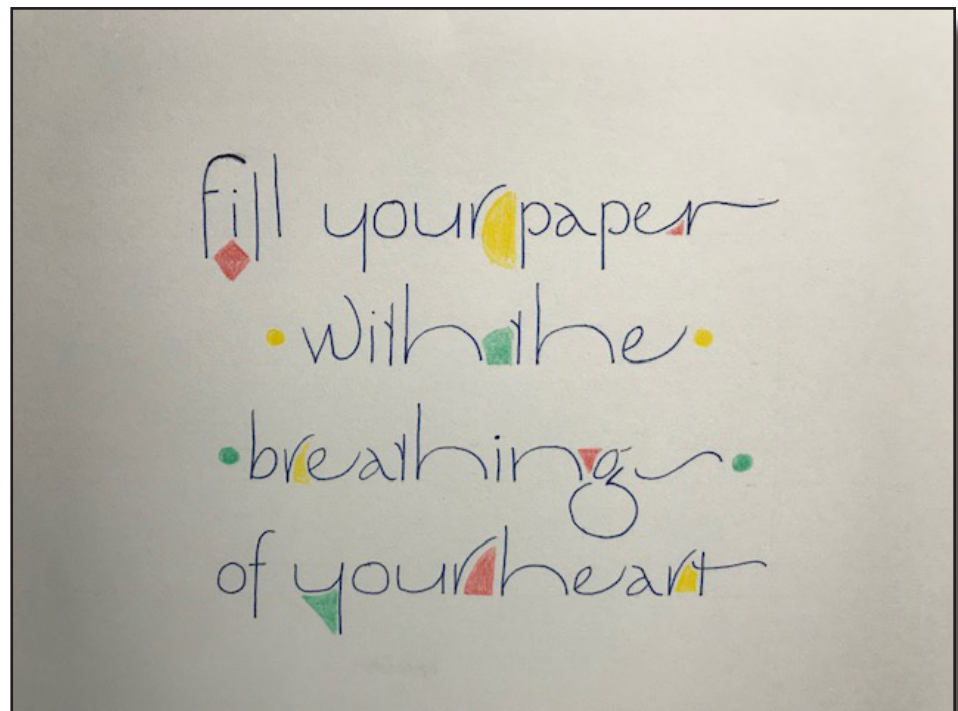 fill your paper
with the
breathing
of your heart